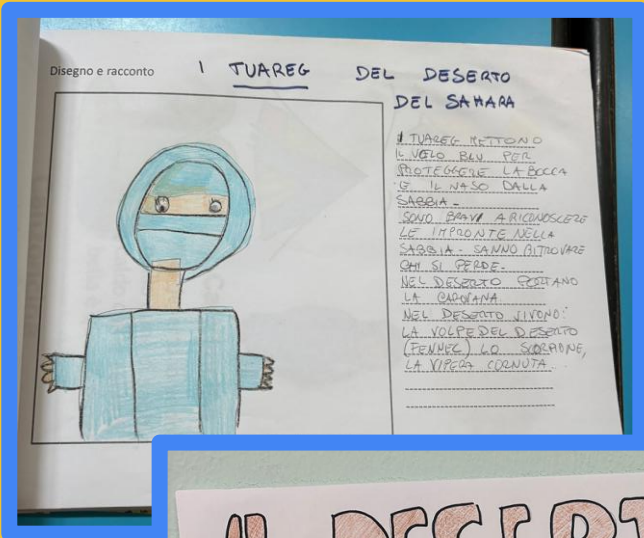 Disegno e racconto
I TUAREG DEL DESERTO
DEL SAHARA
I TUAREG METTONO
IL VELO BLU PER
PROTEGGERE LA BOCCA
E IL NASO DALLA
SABBIA-
SONO BRAVI A RICONOSCERE
LE IMPRONTE NELLA
SABBIA- SANNO RITROVARE
CHI SI PERDE-
NEL DESERTO PORTANO
LA CAROVANA
NEL DESERTO VIVONO:
LA VOLPE DEL DESERTO
(FENNEC) LO SCORPIONE,
LA VIPERA CORNUTA.
IL DESERT